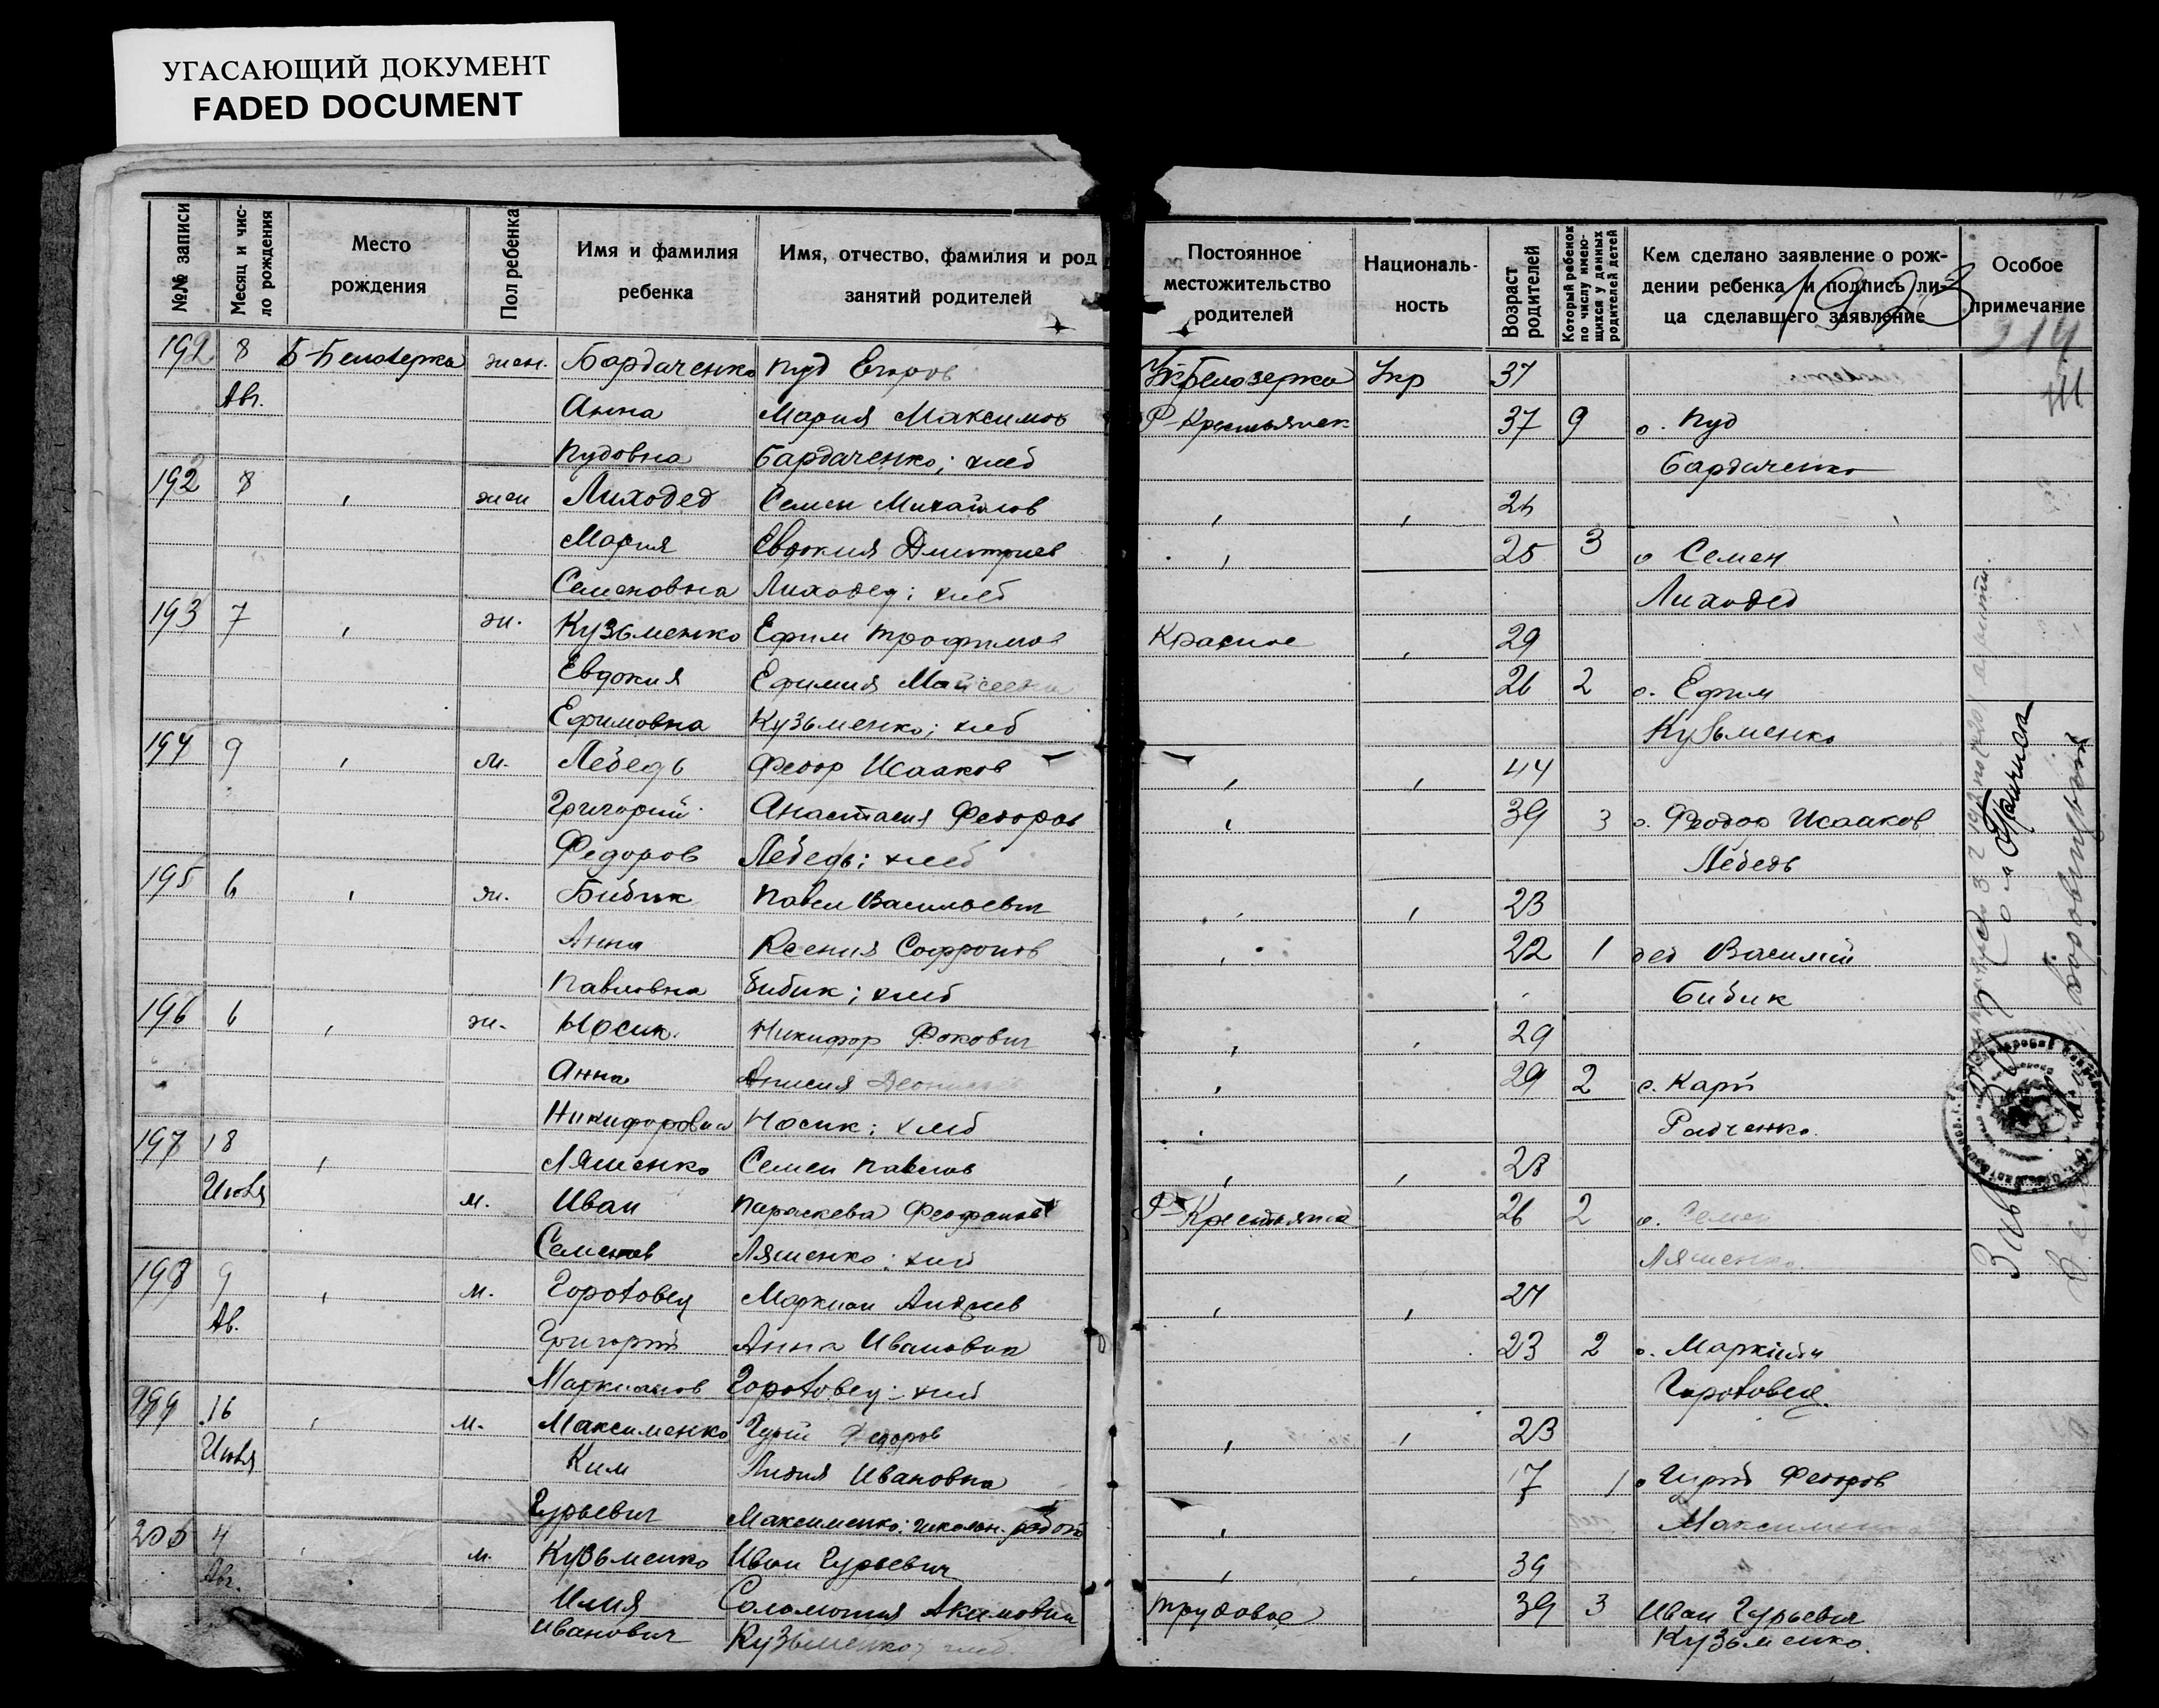 УГАСАЮЩИЙ ДОКУМЕНТ
FADED DOCUMENT
№№ записи
Месяц и чис-
ло рождения
Место
рождения
Пол ребенка
Имя и фамилия
ребенка
Имя, отчество, фамилия и род
занятий родителей
Постоянное
местожительство
родителей
Националь-
ность
Возраст
родителей
Который ребенок
по числу имею-
щихся у данных
родителей детей
Кем сделано заявление о рож-
дении ребенка и подпись ли-
ца сделавшего заявление
Особое
примечание
192 8 Б-Белозерка жен. Бордаченко Пуд Егоров Б-Белозерка Укр 37
Авг. Анна Мария Максимов Р-Крестьянск 37 9 о. Пуд
Пудовна Бардаченко; хлеб Бардаченко
192 8 жен Лиходед Семен Михайлов
Мария Евдокия Дмитриев 25 3 о Семен
Семеновна Лиходед; хлеб Лиходед
193 7 ж. Кузьменко Ефим Трофимов Красное 29
Евдокия Ефимия 26 2 о. Ефим
Ефимовна Кузьменко; хлеб Кузьменко
194 9 м. Лебедь Федор Исааков 44
Григорий Анастасия Федоров 39 3 о. Феодор Исааков
Федоров Лебедь; хлеб Лебедь
195 6 ж. Бибик Павел Васильевич 23
Анна Ксения Софронов 22 1 дед Василий
Павловна Бибик; хлеб Бибик
196 6 ж. Носик Никифор Фокович 29
Анна Анисия 29 2 Карп
Никифоровна Носик; хлеб Радченко.
197 18 Ляшенко Семен Павлов 28
Июля м. Иван Параскева Феофанов Р-Крестьянск 26 2 о. Семен
Семенов Ляшенко; хлеб Ляшенко.
198 9 м. Горотовец Маркиан Андреев
Ав. Григорий Анна Ивановна 23 2 о. Маркиан
Маркианов Горотовец; хлеб Горотовец.
199 16 м. Максименко Гурий Федоров 23
Июля Ким Лидия Ивановна 17 1 о Гурий Федоров
Гурьевич Максименко; школьн. работ Максименко
200 4 м. Кузьменко Иван Гурьевич 39
Авг. Илия Соломония Акимовна Трудовое 39 3 Иван Гурьевич
Иванович Кузьменко, хлеб. Кузьменко.